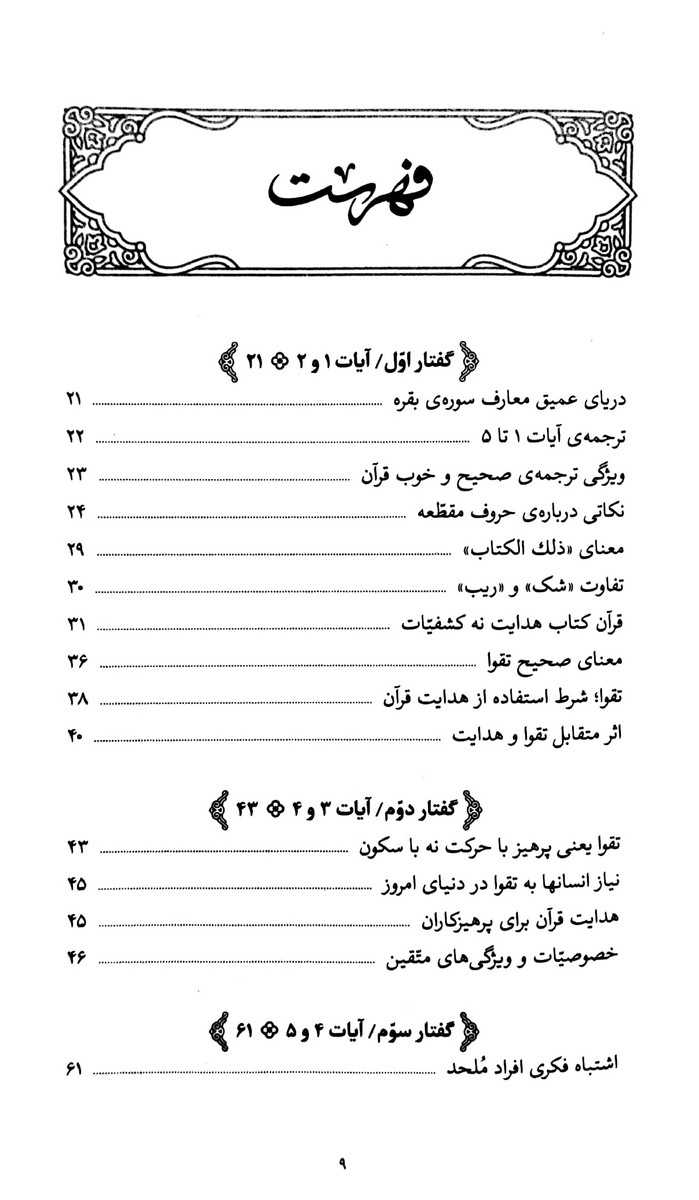 فهرست
گفتار اوّل/ آیات ۱ و ۲ ۲۱
دریای عمیق معارف سوره‌ی بقره ۲۱
ترجمه‌ی آیات ۱ تا ۵ ۲۲
ویژگی ترجمه‌ی صحیح و خوب قرآن ۲۳
نکاتی درباره‌ی حروف مقطّعه ۲۴
معنای «ذلك الکتاب» ۲۹
تفاوت «شک» و «ریب» ۳۰
قرآن کتاب هدایت نه کشفیّات ۳۱
معنای صحیح تقوا ۳۶
تقوا؛ شرط استفاده از هدایت قرآن ۳۸
اثر متقابل تقوا و هدایت ۴۰
گفتار دوّم/ آیات ۳ و ۴ ۴۳
تقوا یعنی پرهیز با حرکت نه با سکون ۴۳
نیاز انسانها به تقوا در دنیای امروز ۴۵
هدایت قرآن برای پرهیزکاران ۴۵
خصوصیّات و ویژگی‌های متّقین ۴۶
گفتار سوّم/ آیات ۴ و ۵ ۶۱
اشتباه فکری افراد مُلحد ۶۱
۹